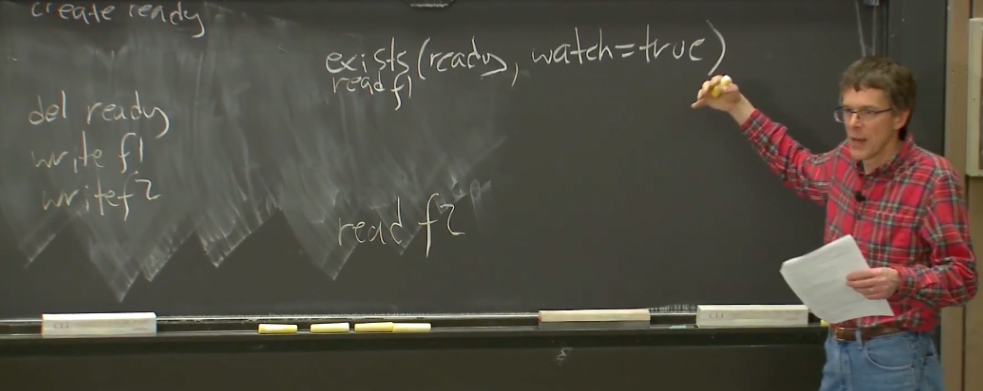 create ready
del ready
write f1
write f2
exists(ready, watch=true)
read f1
read f2